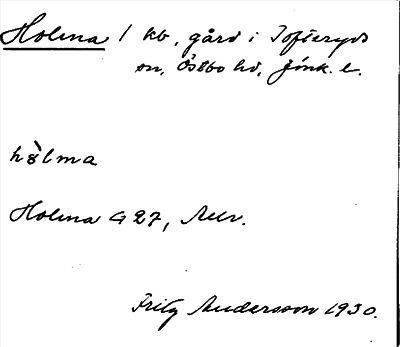 Holma 1 kb, gård i Tofteryds
sn, Östbo hd, Jönk. l.
hòlma
Holma G 27,
Fritz Andersson 1930.